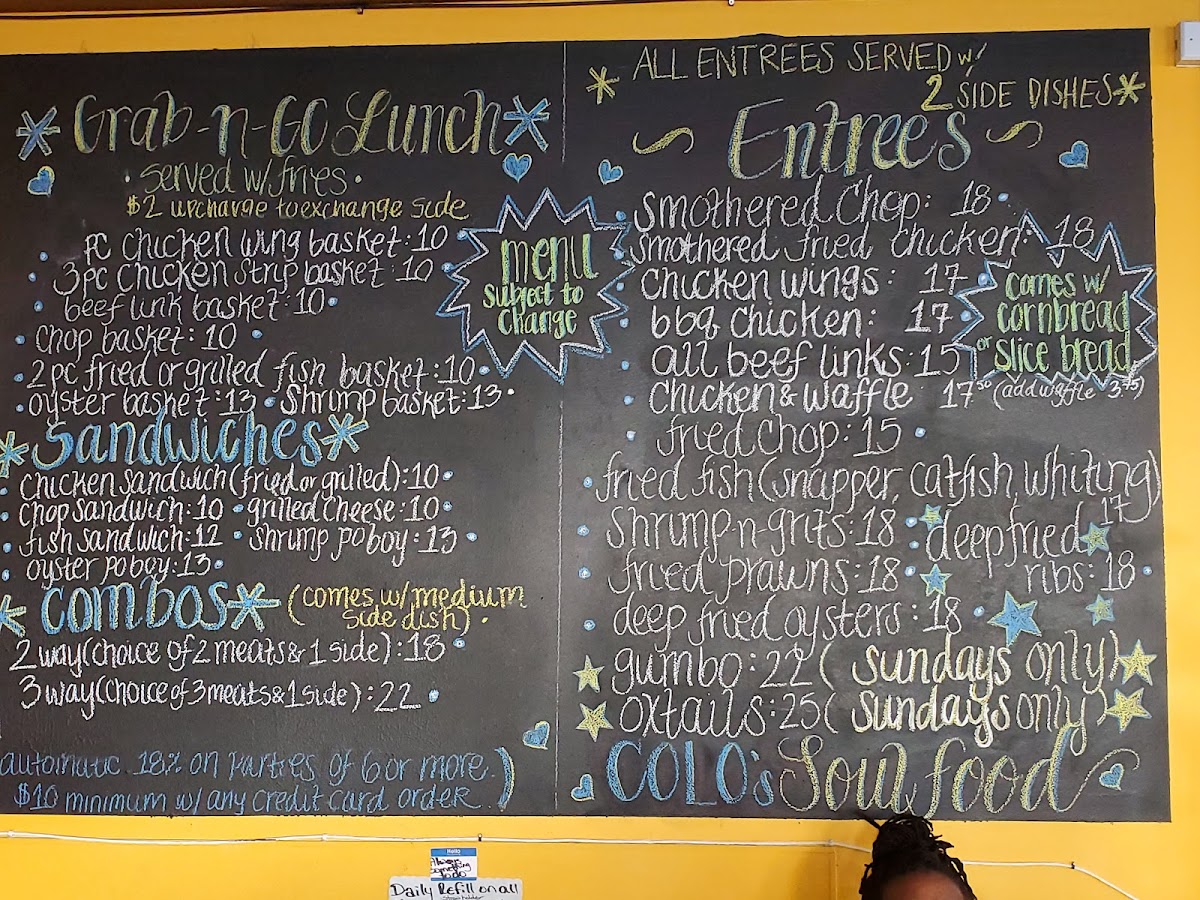 Grab-n-GO Lunch
• served w/fries •
$2 upcharge to exchange side
pc chicken wing basket: 10
3pc chicken strip basket: 10
beef link basket: 10
chop basket: 10
2 pc fried or grilled fish basket: 10
oyster basket: 13 • shrimp basket: 13 •
menu
subject to
change
Sandwiches
chicken sandwich (fried or grilled): 10
chop sandwich: 10 • grilled cheese: 10
fish sandwich: 12 • shrimp po boy: 13
oyster po boy: 13
Combos (comes w/ medium
side dish) •
2 way (choice of 2 meats & 1 side): 18
3 way (choice of 3 meats & 1 side): 22
automatic 18% on parties of 6 or more
$10 minimum w/ any credit card order )
ALL ENTREES SERVED w/
2 SIDE DISHES
Entrees
smothered Chop: 18
smothered fried chicken: 18
chicken wings: 17
bbq chicken: 17
all beef links: 15
chicken & waffle 17.50 (add waffle 3.75)
fried chop: 15
comes w/
cornbread
or slice bread
fried fish (snapper, catfish, whiting)
17
shrimp-n-grits: 18
deep fried
ribs: 18
fried prawns: 18
deep fried oysters: 18
gumbo: 22 (sundays only)
oxtails: 25 (sundays only)
COLO's Soul food
Hello
Always
something
to do
Daily Refill on all